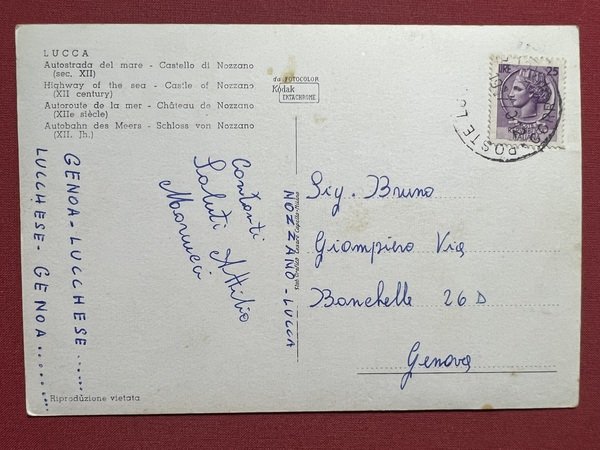 LUCCA
Autostrada del mare - Castello di Nozzano
(sec. XII)
Highway of the sea - Castle of Nozzano
(XII century)
Autoroute de la mer - Château de Nozzano
(XIIe siècle)
Autobahn des Meers - Schloss von Nozzano
(XII. Jh.)
da FOTOCOLOR
Kodak
EKTACHROME
LIRE 25
POSTE
GENOA - LUCCHESE ......
LUCCHESE - GENOA ........
Contanti
Saluti Attilio
Marucci
NOZZANO - LUCCA
Sig. Bruno
Giampiero Via
Banchelle 26 D
Genova
Riproduzione vietata